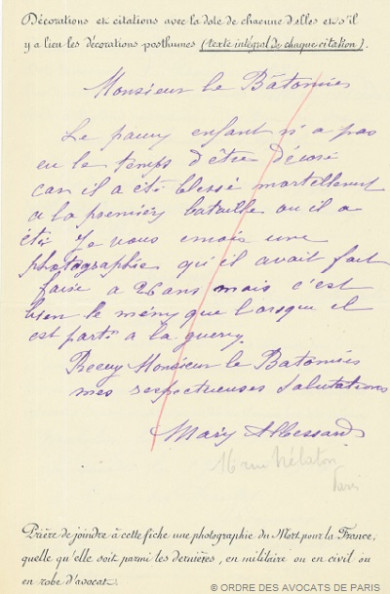 Décorations et citations avec la date de chacune d'elles et s'il
y a lieu les décorations posthumes (texte intégral de chaque citation).
Monsieur le Bâtonnier
Le pauvre enfant n'a pas
eu le temps d'être décoré
car il a été blessé mortellement
a la première bataille ou il a
été. Je vous envois une
photographie qu'il avait fait
faire a 26 ans mais c'est
bien le même que lorsque il
est parti a la guerre.
Recevez Monsieur le Batonnier
mes respectueuses salutations
Mary Albessard
16 rue Nélaton
Paris
Prière de joindre à cette fiche une photographie du Mort pour la France,
quelle qu'elle soit parmi les dernières, en militaire ou en civil ou
en robe d'avocat.
© ORDRE DES AVOCATS DE PARIS